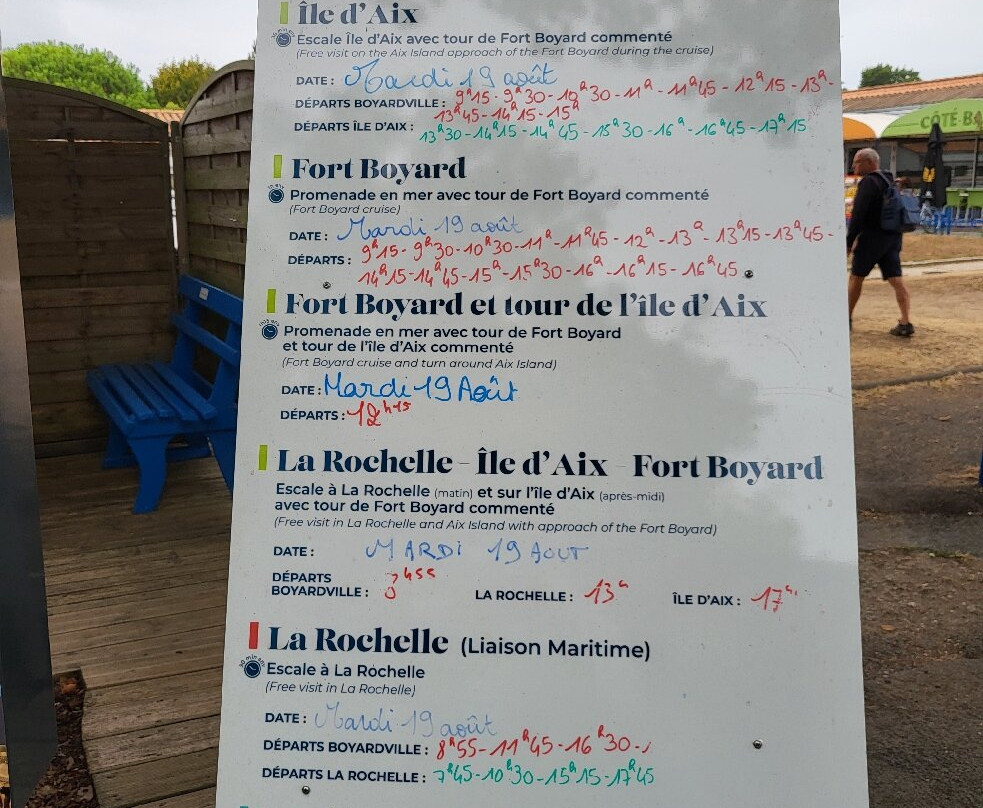 Île d'Aix
Escale Île d'Aix avec tour de Fort Boyard commenté
(Free visit on the Aix Island approach of the Fort Boyard during the cruise)
DATE : Mardi 19 août
DÉPARTS BOYARDVILLE : 9h15 - 9h30 - 10h30 - 11h - 11h45 - 12h15 - 13h -
13h45 - 14h15 - 15h
DÉPARTS ÎLE D'AIX : 13h30 - 14h15 - 14h45 - 15h30 - 16h - 16h45 - 17h15
Fort Boyard
Promenade en mer avec tour de Fort Boyard commenté
(Fort Boyard cruise)
DATE : Mardi 19 août
DÉPARTS : 9h15 - 9h30 - 10h30 - 11h - 11h45 - 12h - 13h - 13h15 - 13h45 -
14h15 - 14h45 - 15h - 15h30 - 16h - 16h15 - 16h45
Fort Boyard et tour de l'île d'Aix
Promenade en mer avec tour de Fort Boyard
et tour de l'île d'Aix commenté
(Fort Boyard cruise and turn around Aix Island)
DATE : Mardi 19 Août
DÉPARTS : 12h15
La Rochelle - Île d'Aix - Fort Boyard
Escale à La Rochelle (matin) et sur l'île d'Aix (après-midi)
avec tour de Fort Boyard commenté
(Free visit in La Rochelle and Aix Island with approach of the Fort Boyard)
DATE : MARDI 19 AOUT
DÉPARTS
BOYARDVILLE : LA ROCHELLE : 13h ÎLE D'AIX : 17h
La Rochelle (Liaison Maritime)
Escale à La Rochelle
(Free visit in La Rochelle)
DATE : Mardi 19 août
DÉPARTS BOYARDVILLE : 8h55 - 11h45 - 16h30 -
DÉPARTS LA ROCHELLE : 7h45 - 10h30 - 15h15 - 17h45
CÔTÉ